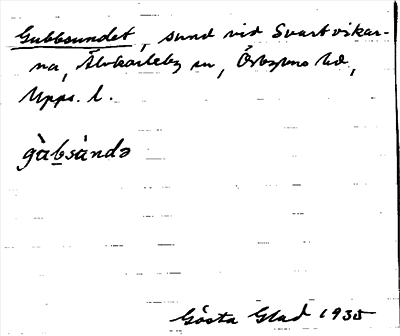 Gubbsundet, sund vid Svartvikar-
na, Älvkarleby sn, Örbyhus hd,
Upps. l.
gu̇̀bsu̇̀ndə
Gösta Glad 1935